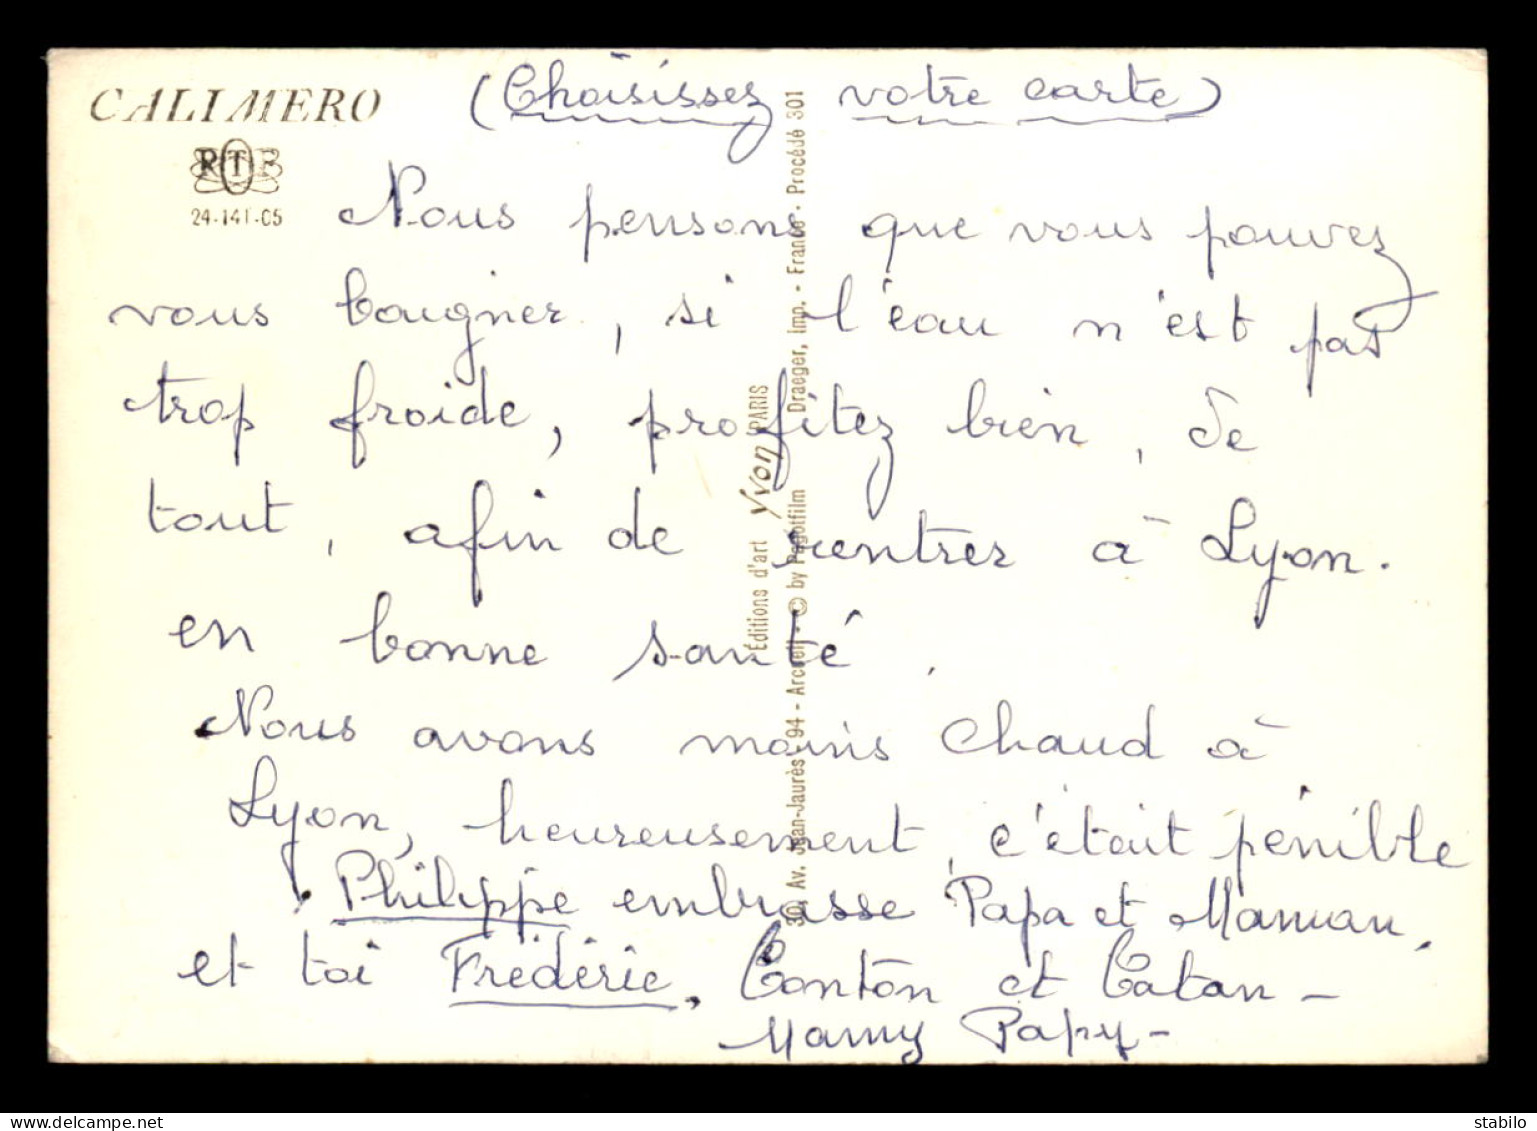 CALIMERO (Choisissez votre carte)
ORTF
24-141-05
Nous pensons que vous pouvez
vous baigner, si l'eau n'est pas
trop froide, profitez bien, de
tout, afin de rentrer à Lyon.
en bonne santé.
Nous avons moins chaud à
Lyon, heureusement, c'était pénible
. Philippe embrasse Papa et Maman,
et toi Frédéric, Tonton et Tatan -
Mamy Papy -
Éditions d'art Yvon PARIS
30, Av. Jean-Jaurès - 94 - Arcueil - © by Pagotfilm Draeger, Imp. - France - Procédé 301
stabilo